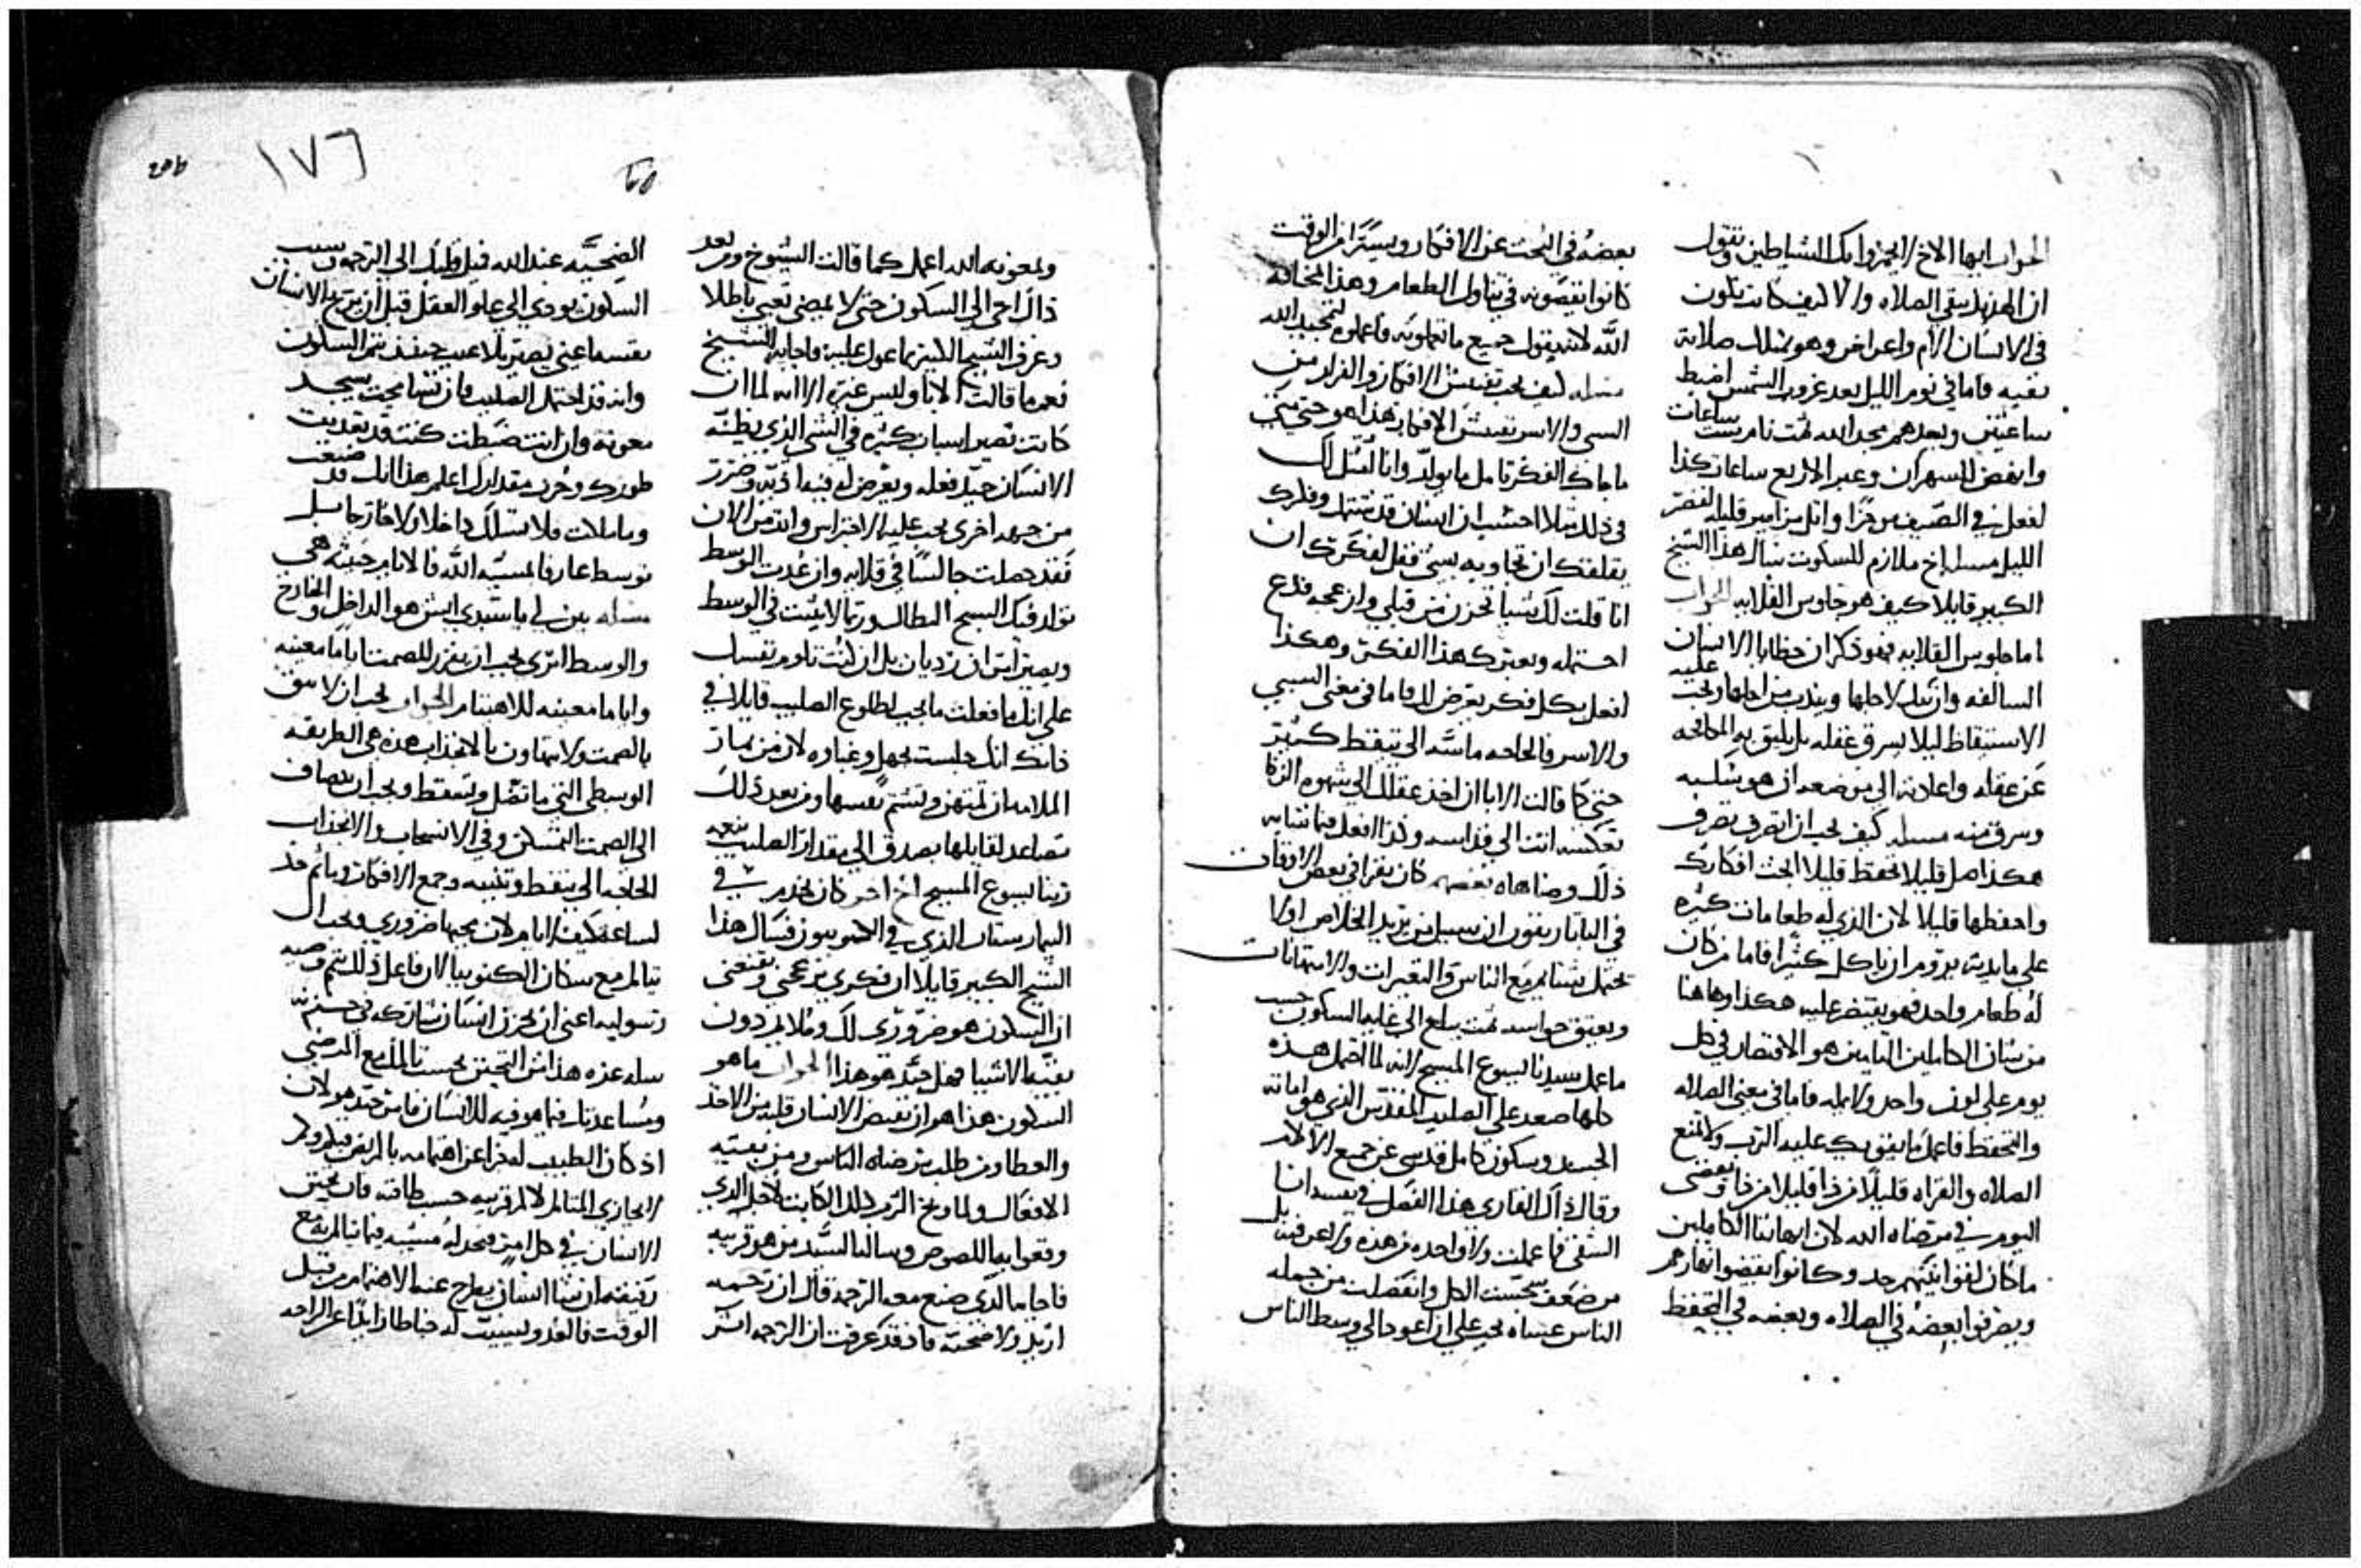 الجواب ايها الاخ لا يحزوا بك الشياطين وتقول
ان الهذيذ يبقي الصلاه والا كيف كانت تكون
في الانسان الام واعراض وهو يمتلك صلاة
نقيه واما في نوم الليل بعد غروب الشمس اضبط
ساعتين وبعدهم مجد الله ثمت نام ست ساعات
وانهض للسهران وعبر الاربع ساعات كذا
لفعل في الصيف موخرا واتل مزامير قليله لقصر
الليل مسله اخ ملازم للسكوت سال هذا الشيخ
الكبير قايلا كيف هو جلوس القلايه الجواب
اما جلوس القلايه فهو ذكران خطايا الانسان
السالفه وان يبكي لاجلها ويندب من اجلها ويجب عليه
الاستيقاظ ليلا يسرق عقله بل يليق به المكافحه
عن عقله واعادته الي موضعه ان هو سلبه
وسرق منه مسله كيف يجب ان اتصرف تصرف
هكذا صل قليلا تحفظ قليلا ابحث افكارك
واحفظها قليلا لان الذي له طعامات كثيره
علي مايدته يروم ان ياكل كثيرا فاما من كان
له طعام واحد فهو يقتصر عليه هكذا وهاهنا
من شان الكاملين الثابتين هو الاقتصار في كل
يوم علي لون واحد ولا يمله فاما في معني الصلاه
والتحفظ فاعمل ما يقويك عليه الرب ولا تمنع
الصلاه والقراه قليلا من ذا قليلا من ذا وتقضي
اليوم في مرضاه الله لان اباهاتنا الكاملين
ما كان لقوانينهم حد وكانوا يقضوا نهارهم
ويصرفوا بعضه في الصلاه وبعضه في التحفظ
بعضه في البحث عن الافكار ويسيرا من الوقت
كانوا ينقصونه في تناول الطعام وهذا لمخافه
الله لانه يقول جميع ما تعملونه فاعملوه لتمجيد الله
مسله كيف يجب تفتيش الافكار والفرار من
السبي والاسر تفتيش الافكار هذا هو حتي متي
ما جاك الفكر تامل ما يولد وانا امثل لك
في ذلك مثلا احسب ان انسان قد شتمك وفكرك
يقلقك ان تجاوبه بشي فقل لفكرك ان
انا قلت لك شيا تحزن من قبلي وازعجه فدع
احتمله ويعبرك هذا الفكر وهكذا
افعل بكل فكر يعرض لك فاما في معني السبي
والاسر فالحاجه ماسه الي تيقظ كثير
حتي كما قالت الابا ان اخذ عقلك الي شهوه الزنا
تعكسه انت الي قداسه وكذا افعل فيما شاكل
ذلك وضاهاه بعضهم كان يقرا في بعض الاوقات
في الباتاريقون ان سبيل من يريد الخلاص اولا
يحتمل شتايم مع الناس والتعييرات والاستهانات
ويعتق حواسه ثمت يبلغ الي غايه السكون حسب
ما عمل سيدنا يسوع المسيح لانه لما احتمل هذه
كلها صعد علي الصليب المقدس الذي هو اماته
الجسد وسكون كامل قدسي عن جميع الالام
وقال ذاك القاري هذا الفصل في نفسه انا
الشقي ما عملت ولا واحده من هذه ولا عرفت بل
من ضعف تحسبت الكل وانفصلت من جمله
الناس عساه يجب علي ان اعود الي وسط الناس
١٧٦
ولمعونه الله اعمل كما قالت الشيوخ ومن بعد
ذلك اجي الي السكون حتي لا يمضي تعبي باطلا
وعرف الشيخ الكبير بما عول عليه فاجابه الشيخ
نعم ما قالت الابا وليس غيره الا انه لما ان
كانت تصير اسباب كثيره في الشي الذي يظنه
الانسان جيد فعله ويعرض له فيه اذيه وضرر
من جهه اخري يجب عليه الاحتراس وانت من الان
فقد حصلت جالسا في قلايه وان عدت الوسط
تولد فيك السبح البطال وربما لا يثبت في الوسط
ويصير امران رديان بل ان كنت تلوم نفسك
علي انك ما فعلت ما يجب لطلوع الصليب قايلا في
ذاتك انك جلست بجهل وغباوه لان من شان
الملامه ان تمتهن وتشتم نفسها ومن بعد ذلك
تصاعد لقايلها بصدق الي مقدار الصليب بنعمه
ربنا يسوع المسيح اخ اخر كان يخدم في
البيمارستان الذي في الكنوبيون فسال هذا
الشيخ الكبير قايلا ان فكري يزعجني ويقنعني
ان السكون هو ضروري لك وملايم دون
بقيه الاشيا فهل جيد هو هذا الجواب ما هو
السكون هذا هو ان يقبض الانسان قلبه من الاخذ
والعطا ومن طلب مرضاه الناس ومن بقيه
الافعال ولما وبخ الرب ذلك الكاتب لاجل الذي
وقعوا بيه اللصوص وساله السيد من هو قريبه
فاجابه الذي صنع معه الرحمه قال ان رحمه
اريد ولا ضحيه فاذ قد عرفت ان الرحمه اكثر
الضحيه عند الله فيل قلبك الي الرحمه وسبب
السكون يودي الي علو العقل قبل ان يربح الانسان
نفسه اعني يصير بلا عيب حينئذ يتم السكون
وانه قد احتمل الصليب فان تشامخت يسجد
معونه وان انت ضبطت كنت قد تعديت
طورك وخرت مقدارك اعلم هذا انك قد ضيعت
وما ملات فلا تسلك داخلا ولا خارجا بل
توسط عارفا لمسيه الله فالايام خبيثه هي
مسله بين لي يا سيدي ايش هو الداخل والخارج
والوسط اتري يجب ان يفرز للصمت اياما معينه
واياما معينه للاهتمام الجواب يجب ان لا تثق
بالصمت ولا تتهاون بالانجذاب هذه هي الطريقه
الوسطي التي ما تضل ولا تسقط ويجب ان يضاف
الي الصمت التمسكن وفي الانسحاب والانجذاب
الحاجه الي تيقظ وتنبيه وجمع الافكار وما ثم حد
لساعه كيف لا ايام لان جميعها ضروري ويجب ال
نتالم مع سكان الكنوبيا لان فاعل ذلك يتم وصيه
رسوليه اعني ان يحزن انسان نشاركه في حزنه
سله عزه هذا من التحنن يحسب تالمك مع المرضي
ومساعدتك فيما هو فيه للانسان فان جيد هو لان
اذ كان الطبيب له جزا عن اهتمامه بالمريض فبكم
لا يجازي المتالم لالم قريبه حسب طاقته فان يتحنن
الانسان في كل امر فيجد له مشيه فيما تالم به مع
رفيقه ان شا انسان يطرح عنه الاهتمام من قبل
الوقت فالعدو ليسيب له خباطا زايدا عن الراحه